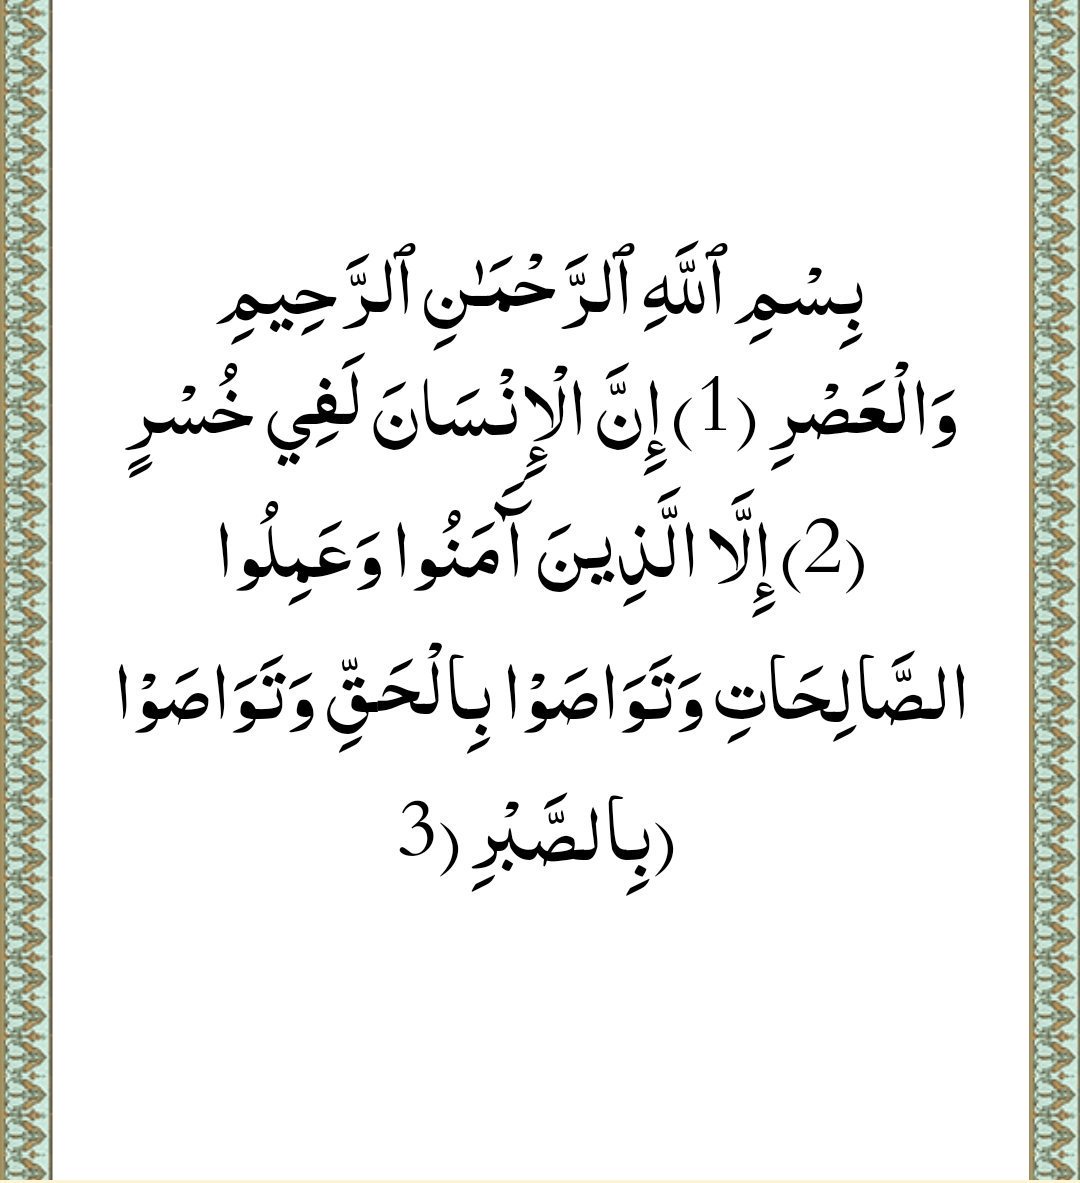 بِسْمِ ٱللَّهِ ٱلرَّحْمَـٰنِ ٱلرَّحِيمِ
وَالْعَصْرِ (1) إِنَّ الْإِنْسَانَ لَفِي خُسْرٍ
(2) إِلَّا الَّذِينَ آَمَنُوا وَعَمِلُوا
الصَّالِحَاتِ وَتَوَاصَوْا بِالْحَقِّ وَتَوَاصَوْا
(بِالصَّبْرِ (3